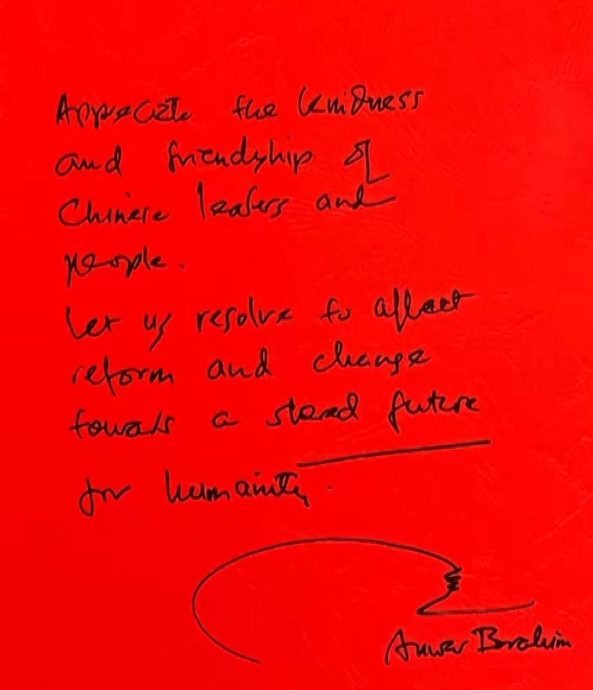 Appreciate the kindness
and friendship of
Chinese leaders and
people.
Let us resolve to affect
reform and change
towards a shared future
for humanity.
Anwar Ibrahim